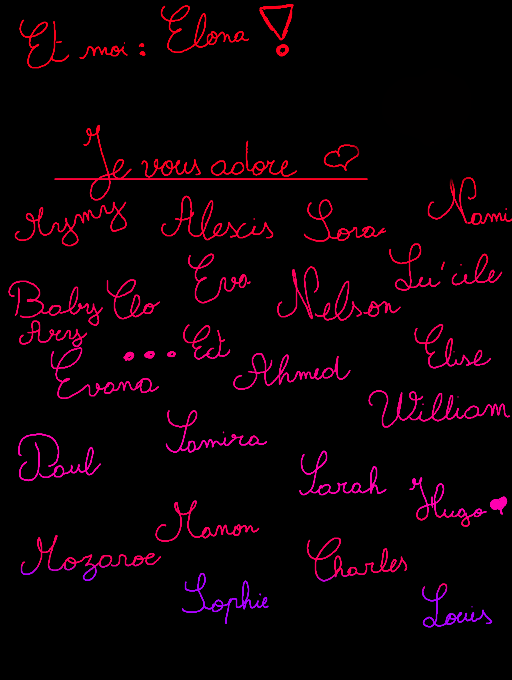 Et moi : Elona !
Je vous adore ♡
Alexis Lora Nami
Eva Lu'cile
Baby Clo Nelson
Ary ... Ect Elise
Evana Ahmed
William
Samira
Paul Sarah
Hugo ♥
Manon
Charles
Sophie Louis